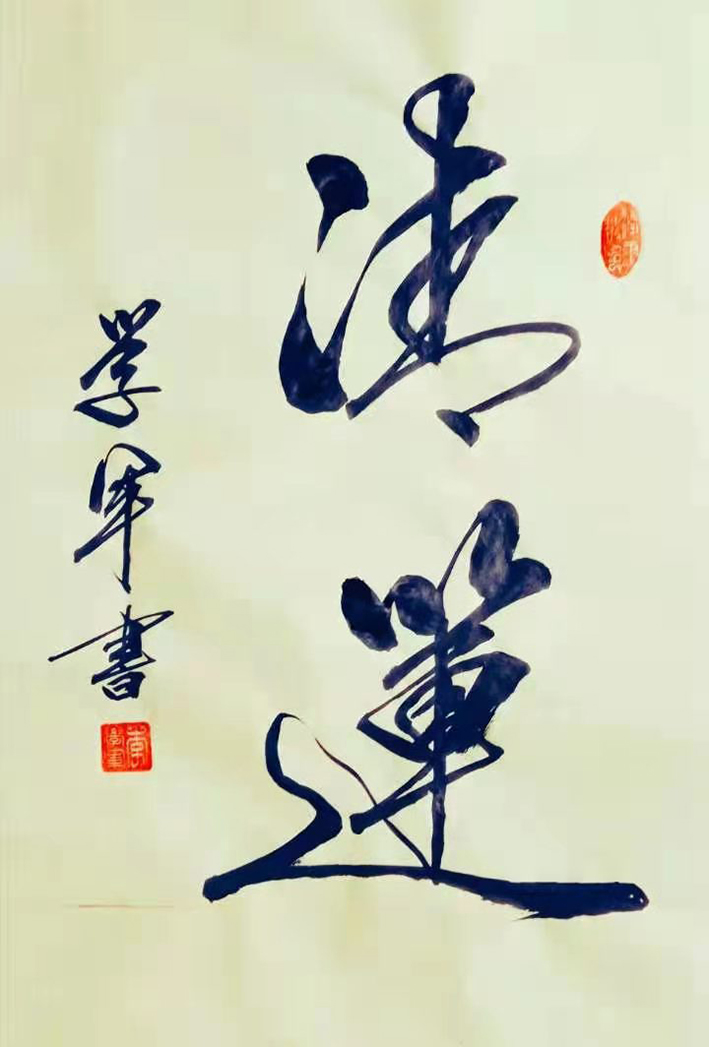 清莲
学军書